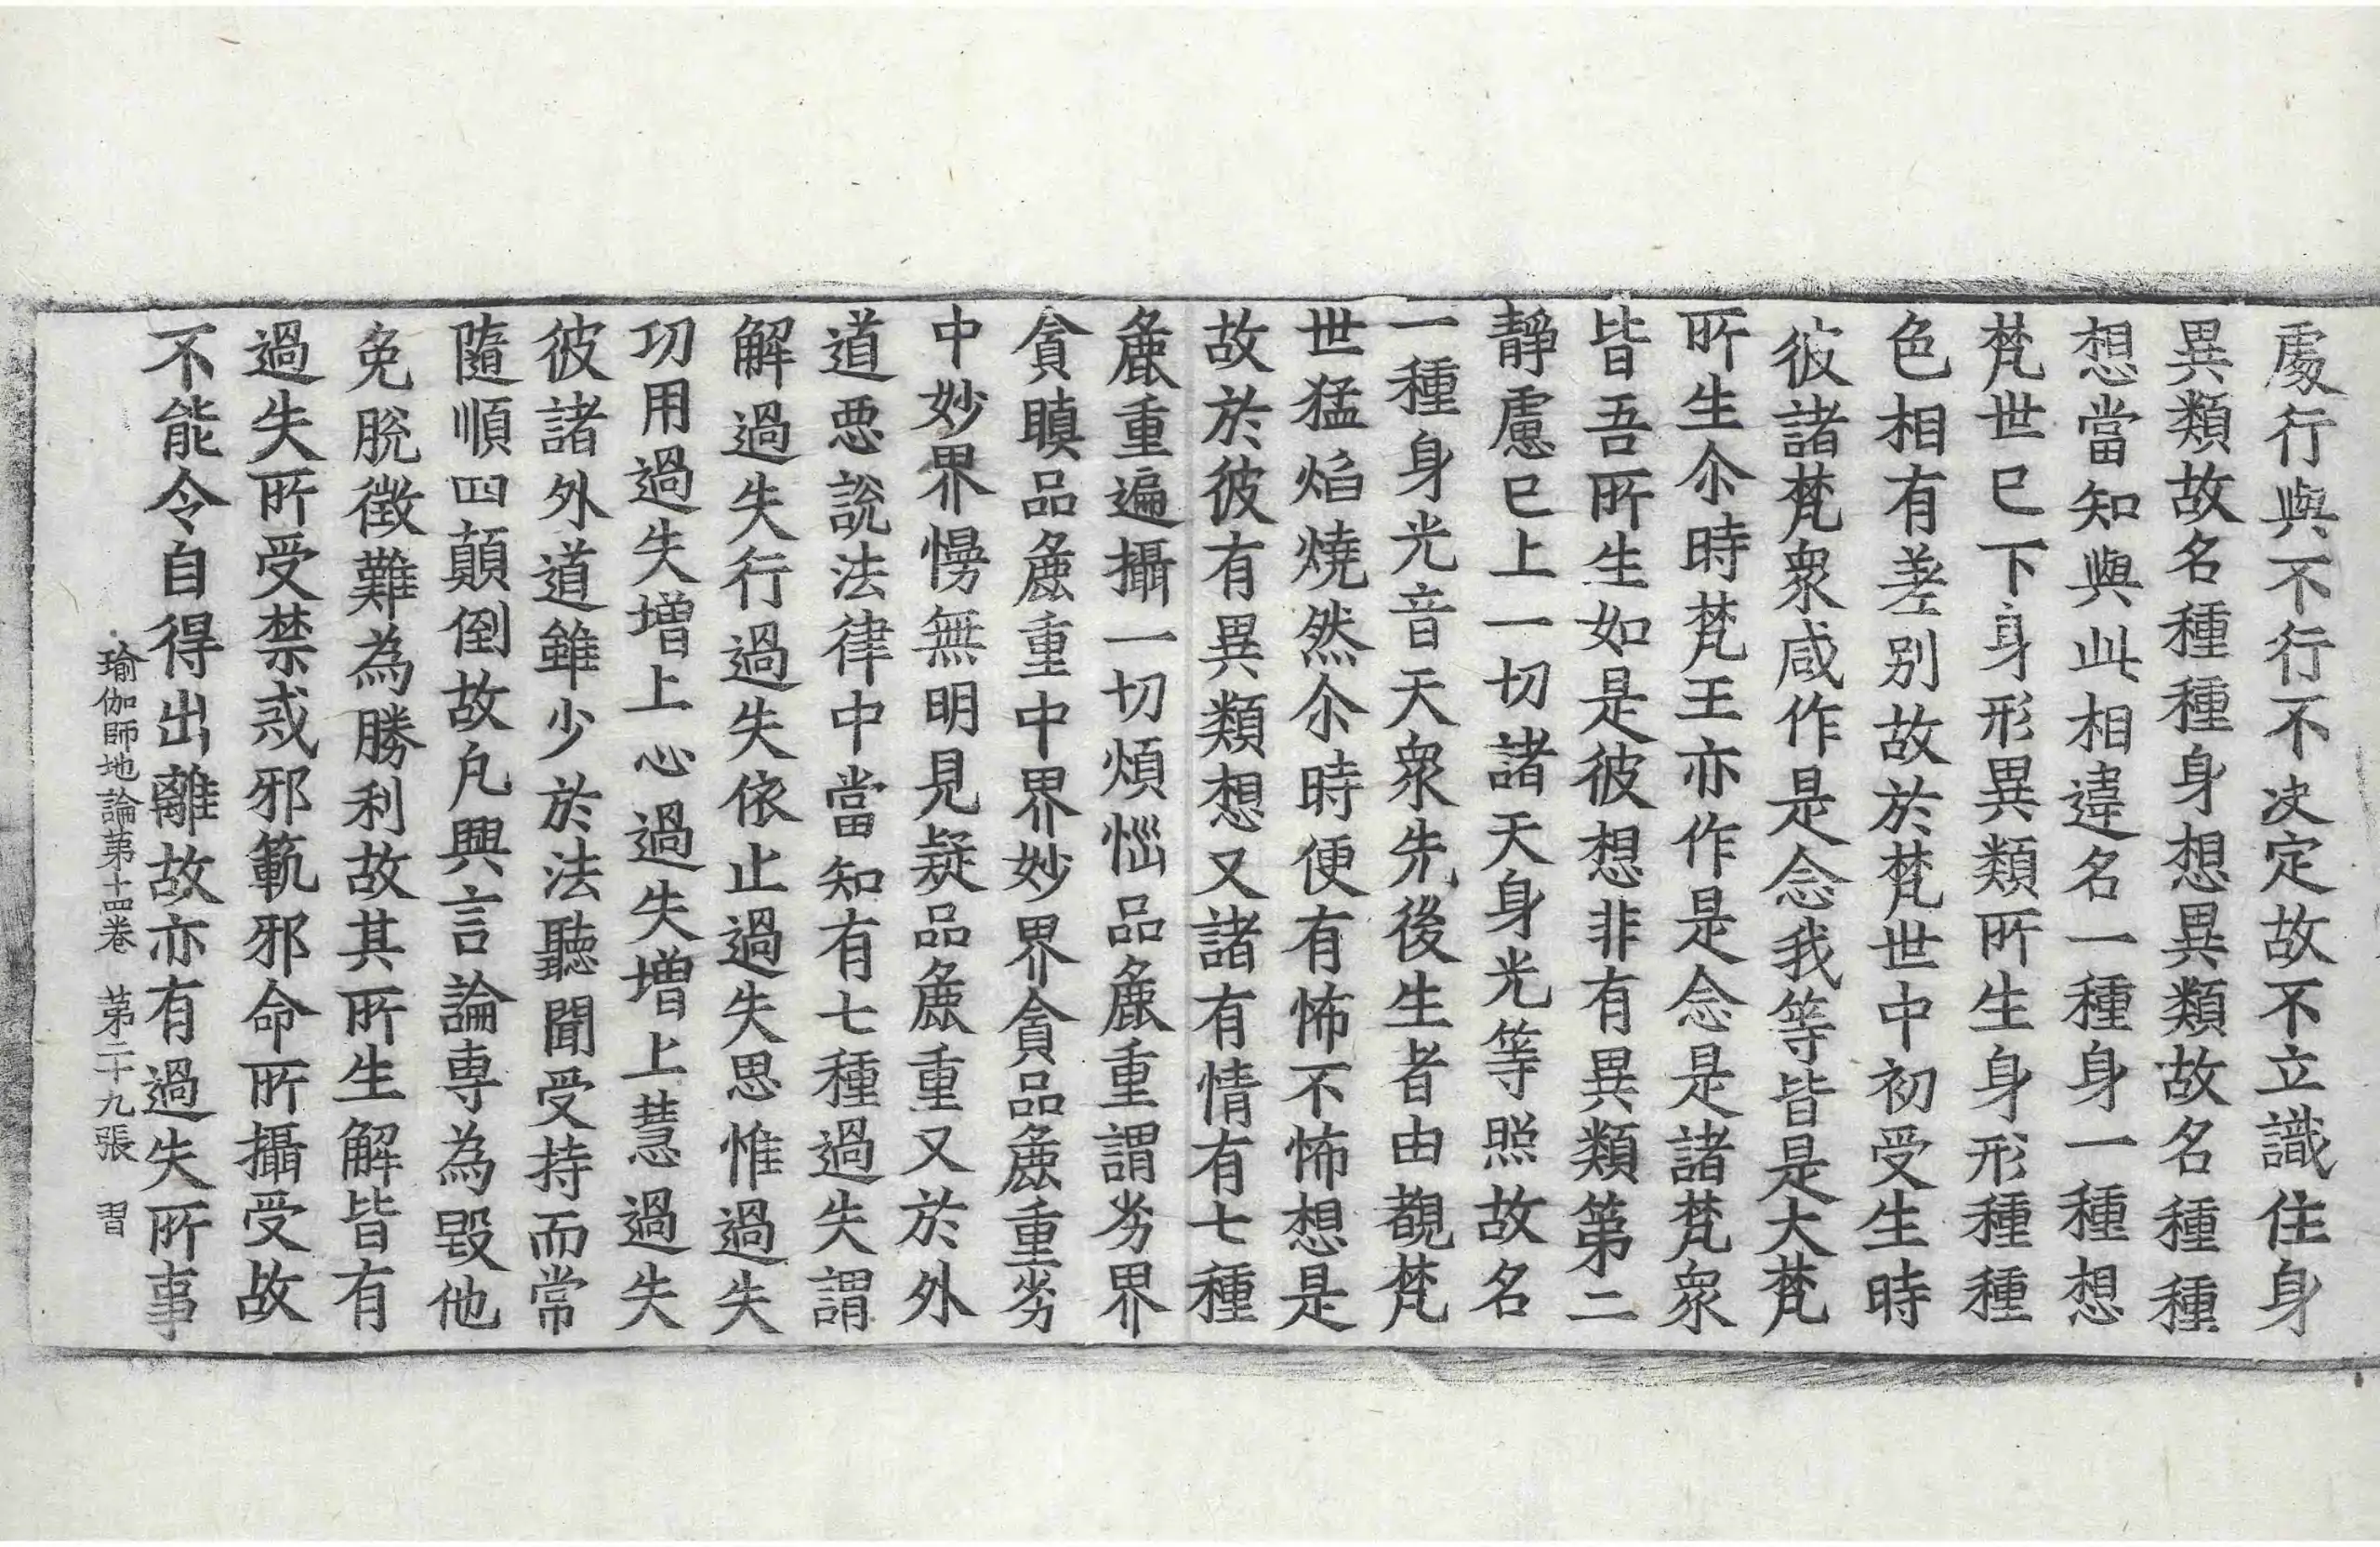 處行與不行不決定故不立識住身
異類故名種種身想異類故名種種
想當知與此相違名一種身一種想
梵世已下身形異類所生身形種種
色相有差别故於梵世中初受生時
彼諸梵衆咸作是念我等皆是大梵
所生尒時梵王亦作是念是諸梵衆
皆吾所生如是彼想非有異類第二
靜慮已上一切諸天身光等照故名
一種身光音天衆先後生者由覩梵
世猛焰燒然尒時便有怖不怖想是
故於彼有異類想又諸有情有七種
麁重遍攝一切煩惱品麁重謂劣界
貪瞋品麁重中界妙界貪品麁重劣
中妙界慢無明見疑品麁重又於外
道惡說法律中當知有七種過失謂
解過失行過失依止過失思惟過失
功用過失增上心過失增上慧過失
彼諸外道雖少於法聽聞受持而常
隨順四顛倒故凡興言論專為毀他
免脫徵難為勝利故其所生解皆有
過失所受禁戒邪範邪命所攝受故
不能令自得出離故亦有過失所事
瑜伽師地論第十四卷 第二十九張 習